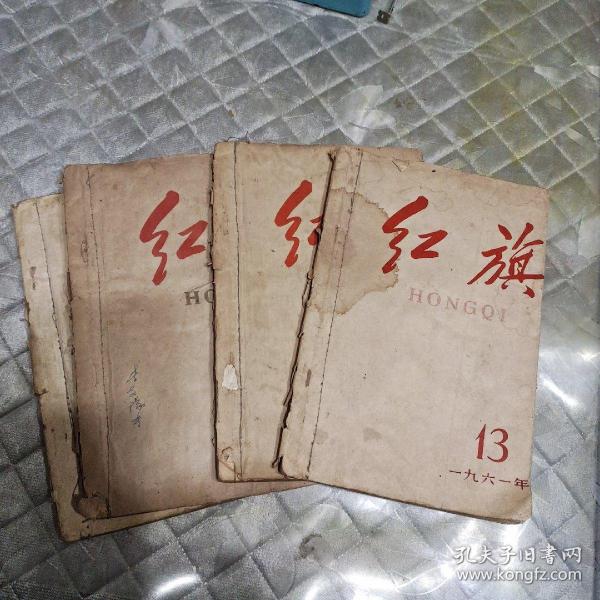 红
HO
红
红旗
HONGQI
13
一九六一年
孔夫子旧书网
www.kongfz.com